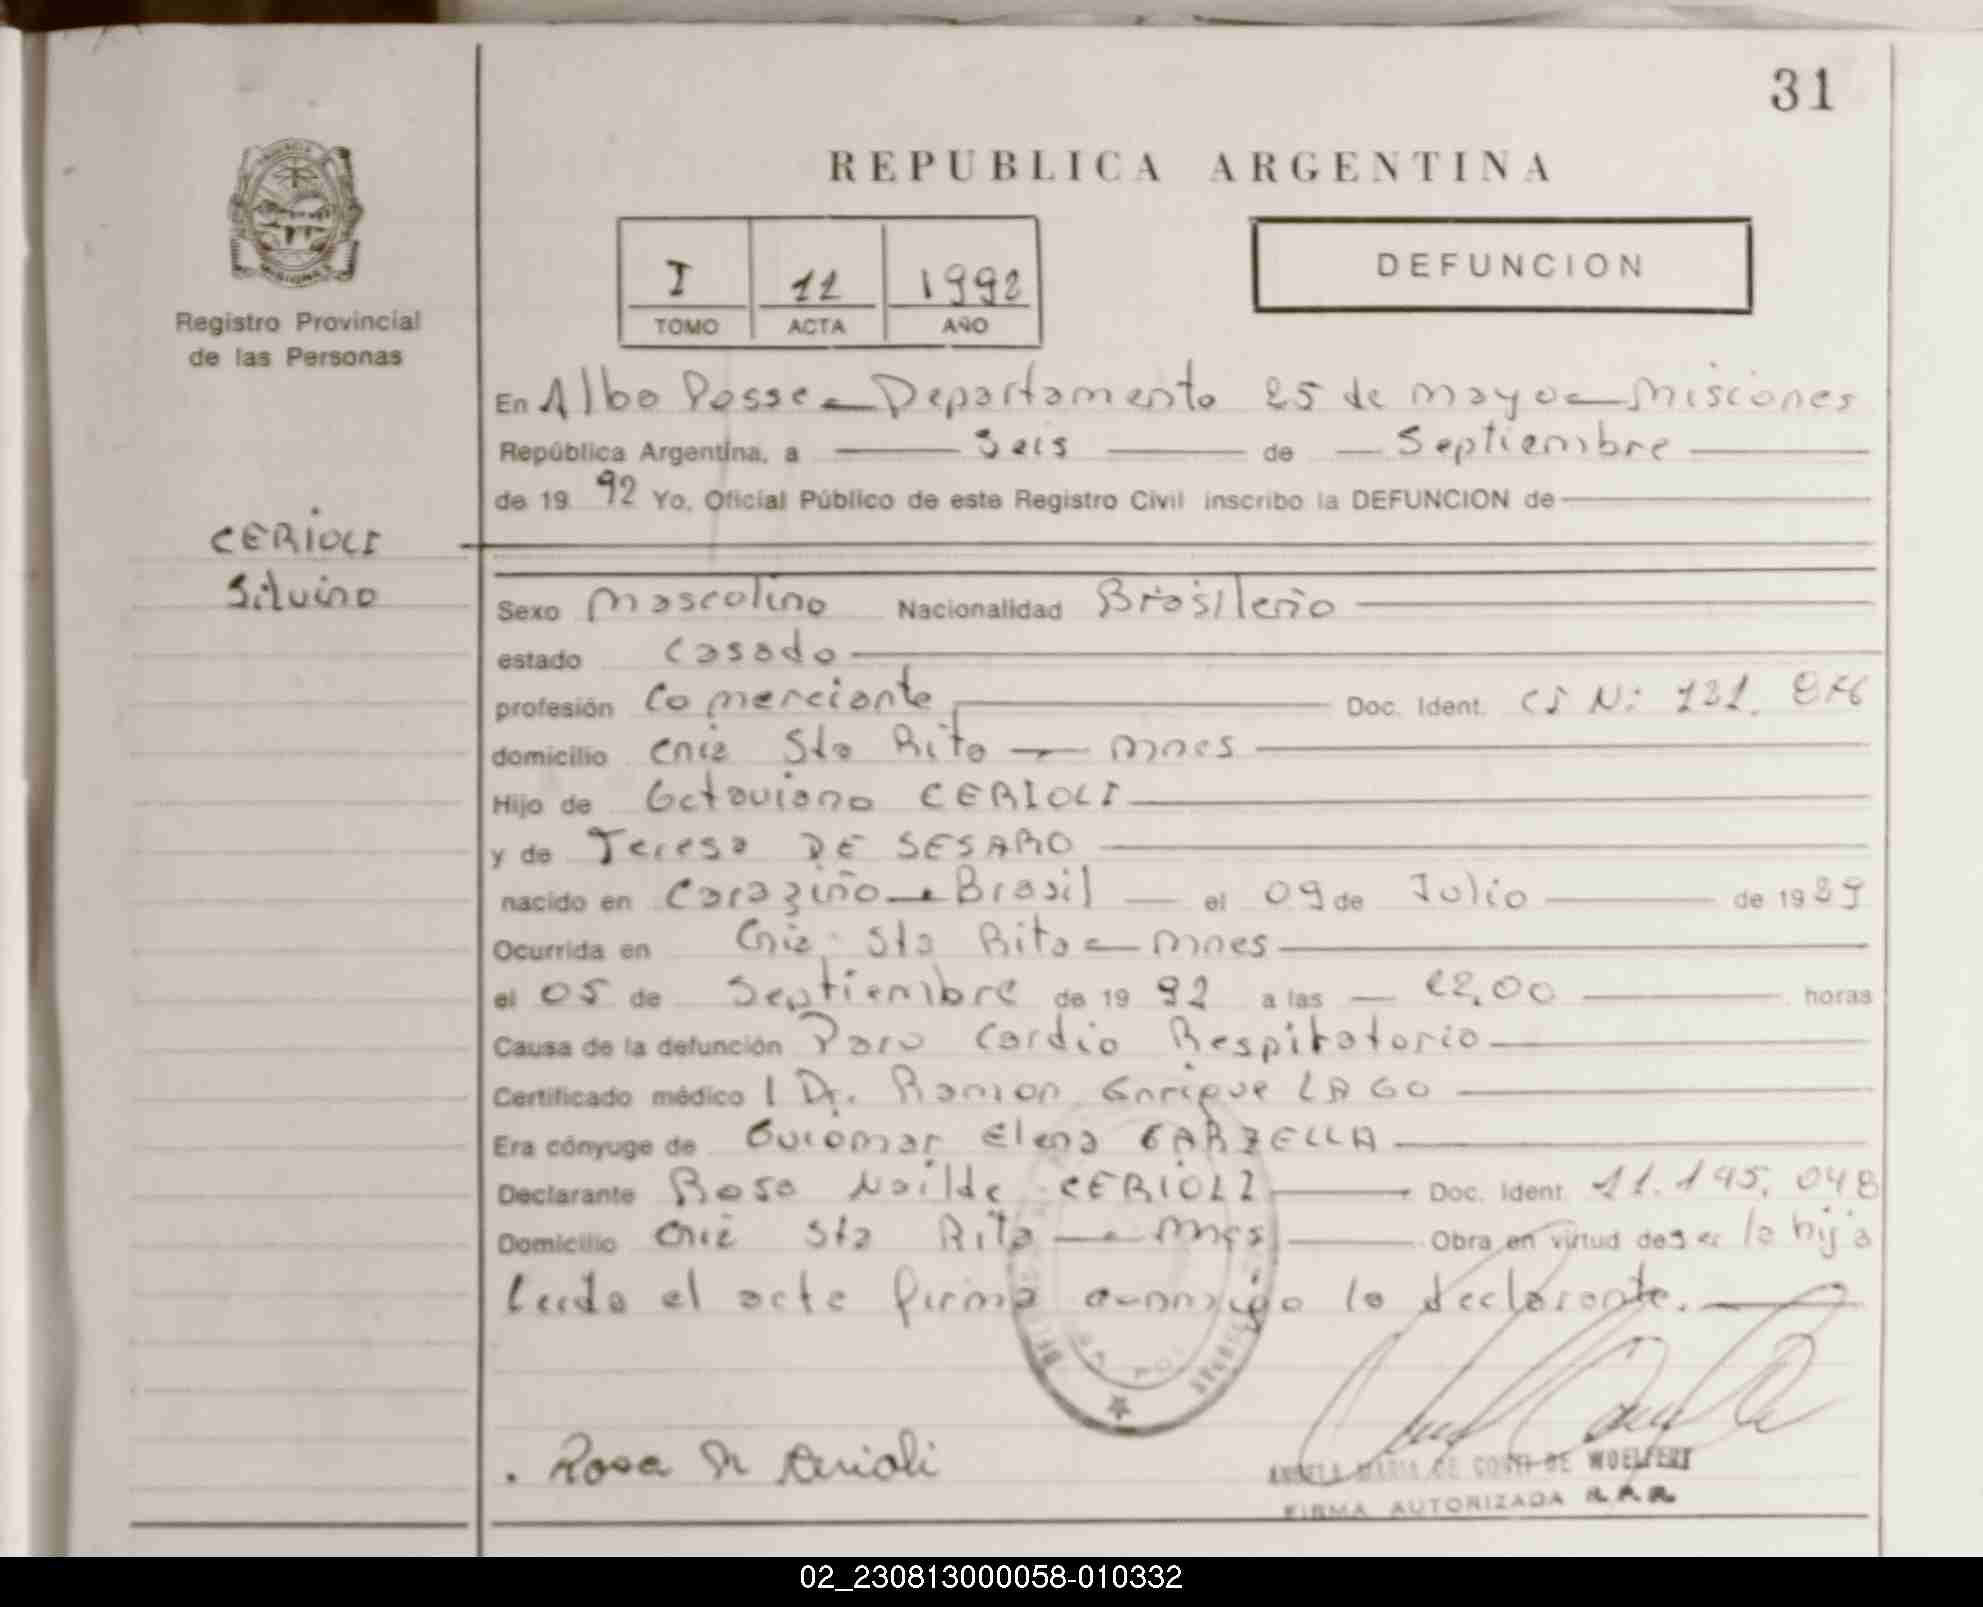 31
REPUBLICA ARGENTINA
I 11 1992
TOMO ACTA AÑO
DEFUNCION
Registro Provincial
de las Personas
CERIOLI
Silvino
En Albo Posse - Departamento 25 de mayo - Misiones
República Argentina, a Seis de Septiembre
de 19 92 Yo, Oficial Público de este Registro Civil inscribo la DEFUNCION de
Sexo Mascolino Nacionalidad Brasileño
estado Casado
profesión Comerciante Doc. Ident. CI Nº 131.
domicilio Cnia Sta Rita - Mnes
Hijo de Octaviano CERIOLI
y de Teresa DE SESARO
nacido en Caraziño - Brasil el 09 de Julio de 19
Ocurrida en Cnia. Sta Rita - Mnes
el 05 de Septiembre de 19 92 a las 22,00 horas
Causa de la defunción Paro Cardio Respiratorio
Certificado médico Dr. Ramon Enrique LAGO
Era cónyuge de Guiomar Elena GARZELLA
Declarante Rosa Nailde CERIOLI Doc. Ident. 11.195.048
Domicilio Cnia Sta Rita - Mnes Obra en virtud de ser la hija
Leida el acta firma conmigo la declarante.
Rosa N Cerioli
ANGELA MARIA DE CONTI DE WOELFERT
FIRMA AUTORIZADA
02_230813000058-010332